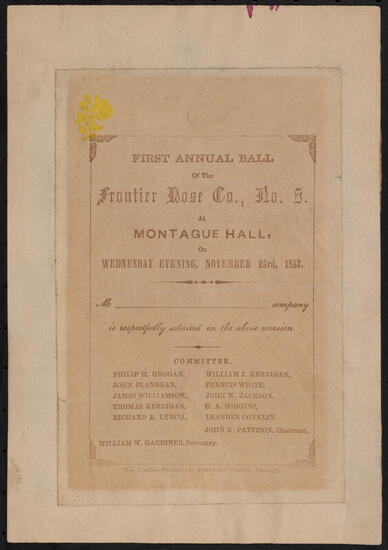 FIRST ANNUAL BALL
Of The
Frontier Hose Co., No. 5.
At
MONTAGUE HALL,
On
WEDNESDAY EVENING, NOVEMBER 23rd, 1853.
M company
is respectfully solicited on the above occasion.
COMMITTEE.
PHILIP H. GROGAN, WILLIAM J. KERRIGAN,
JOHN FLANEGAN, FRANCIS WHITE,
JAMES WILLIAMSON, JOHN W. JACKSON,
THOMAS KERRIGAN, C. A. HIGGINS,
RICHARD R. LYNCH, LEANDER CONKLIN,
JOHN R. PATTISON, Chairman.
WILLIAM W. GARDINER, Secretary.
Printer, cor. Fulton and Brooklyn.